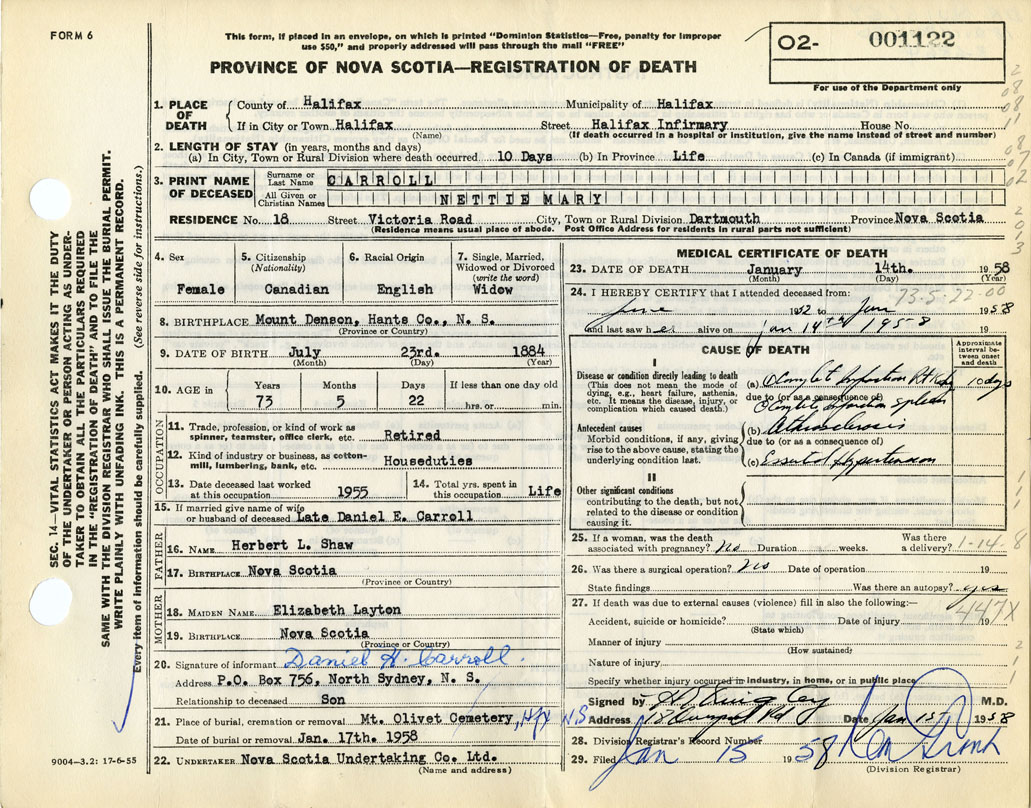 FORM 6
This form, if placed in an envelope, on which is printed "Dominion Statistics—Free, penalty for improper
use $50," and properly addressed will pass through the mail "FREE"
O2- 001122
For use of the Department only
PROVINCE OF NOVA SCOTIA—REGISTRATION OF DEATH
SEC. 14—VITAL STATISTICS ACT MAKES IT THE DUTY
OF THE UNDERTAKER OR PERSON ACTING AS UNDER-
TAKER TO OBTAIN ALL THE PARTICULARS REQUIRED
IN THE "REGISTRATION OF DEATH" AND TO FILE THE
SAME WITH THE DIVISION REGISTRAR WHO SHALL ISSUE THE BURIAL PERMIT.
WRITE PLAINLY WITH UNFADING INK. THIS IS A PERMANENT RECORD.
Every item of information should be carefully supplied. (See reverse side for instructions.)
1. PLACE OF DEATH
County of Halifax Municipality of Halifax
If in City or Town Halifax Street Halifax Infirmary House No.
(Name) (If death occurred in a hospital or institution, give the name instead of street and number)
2. LENGTH OF STAY (in years, months and days)
(a) In City, Town or Rural Division where death occurred 10 Days (b) In Province Life (c) In Canada (if immigrant)
3. PRINT NAME OF DECEASED
Surname or Last Name CARROLL
All Given or Christian Names NETTIE MARY
RESIDENCE No. 18 Street Victoria Road City, Town or Rural Division Dartmouth Province Nova Scotia
(Residence means usual place of abode. Post Office Address for residents in rural parts not sufficient)
4. Sex
Female
5. Citizenship
(Nationality)
Canadian
6. Racial Origin
English
7. Single, Married,
Widowed or Divorced
(write the word)
Widow
8. BIRTHPLACE Mount Denson, Hants Co., N. S.
(Province or Country)
9. DATE OF BIRTH July 23rd. 1884
(Month) (Day) (Year)
10. AGE in Years Months Days If less than one day old
73 5 22 hrs. or min.
OCCUPATION
11. Trade, profession, or kind of work as
spinner, teamster, office clerk, etc. Retired
12. Kind of industry or business, as cotton-
mill, lumbering, bank, etc. Houseduties
13. Date deceased last worked
at this occupation 1955
14. Total yrs. spent in
this occupation Life
15. If married give name of wife
or husband of deceased Late Daniel E. Carroll
FATHER
16. NAME Herbert L. Shaw
17. BIRTHPLACE Nova Scotia
(Province or Country)
MOTHER
18. MAIDEN NAME Elizabeth Layton
19. BIRTHPLACE Nova Scotia
(Province or Country)
20. Signature of informant Daniel H. Carroll.
Address P.O. Box 756, North Sydney, N. S.
Relationship to deceased Son
21. Place of burial, cremation or removal Mt. Olivet Cemetery, Hfx N.S
Date of burial or removal Jan. 17th. 1958
22. UNDERTAKER Nova Scotia Undertaking Co. Ltd.
(Name and address)
9004—3.2: 17-6-55
MEDICAL CERTIFICATE OF DEATH
23. DATE OF DEATH January 14th. 1958
(Month) (Day) (Year)
24. I HEREBY CERTIFY that I attended deceased from: 73.5.22-00
June 1952 to Jan 1958
and last saw her alive on Jan 14th 1958 19
CAUSE OF DEATH
Approximate
interval be-
tween onset
and death
I
Disease or condition directly leading to death
(This does not mean the mode of
dying, e.g., heart failure, asthenia,
etc. It means the disease, injury, or
complication which caused death.)
(a) Complete Infarction Rt Kidney 10 days
due to (or as a consequence of)
Complete infarction spleen
Antecedent causes
Morbid conditions, if any, giving
rise to the above cause, stating the
underlying condition last.
(b) Atherosclerosis
due to (or as a consequence of)
(c) Essential Hypertension
II
Other significant conditions
contributing to the death, but not
related to the disease or condition
causing it.
25. If a woman, was the death
associated with pregnancy? No Duration weeks. Was there
a delivery? 1-14-8
26. Was there a surgical operation? No Date of operation
State findings Was there an autopsy? yes
27. If death was due to external causes (violence) fill in also the following:—
447X
Accident, suicide or homicide? Date of injury 19
(State which)
Manner of injury
(How sustained)
Nature of injury
Specify whether injury occurred in industry, in home, or in public place
Signed by M.D.
Address Date Jan 15 1958
28. Division Registrar's Record Number
29. Filed Jan 15 1958
(Division Registrar)